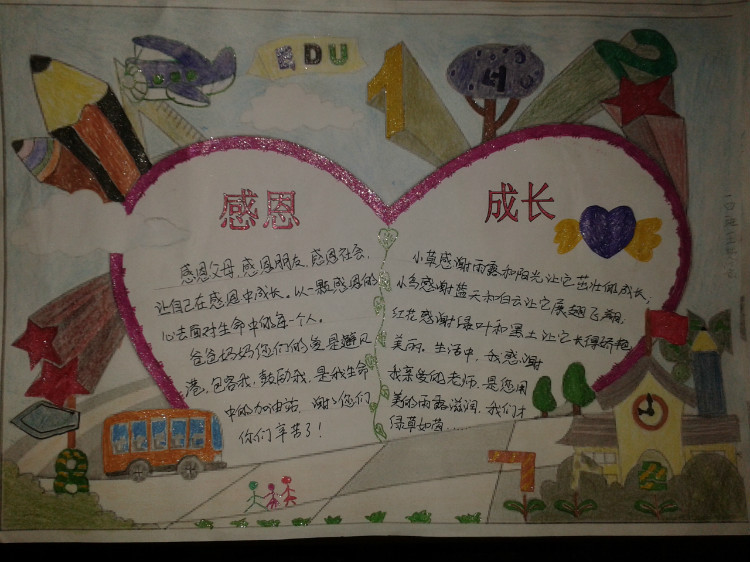 EDU
1
4
2
感恩
感恩父母,感恩朋友,感恩社会,
让自己在感恩中成长。以一颗感恩的
心去面对生命中的每一个人。
爸爸妈妈你们的爱是避风
港,包容我,鼓励我,是我生命
中的加油站,谢谢你们
你们辛苦了!
成长
小草感谢雨露和阳光让它茁壮成长;
小鸟感谢蓝天和白云让它展翅飞翔;
红花感谢绿叶和黑土让它长得娇艳
美丽。生活中,我感谢
我亲爱的老师,是您用
美的雨露滋润,我们才
绿草如茵……
8
7